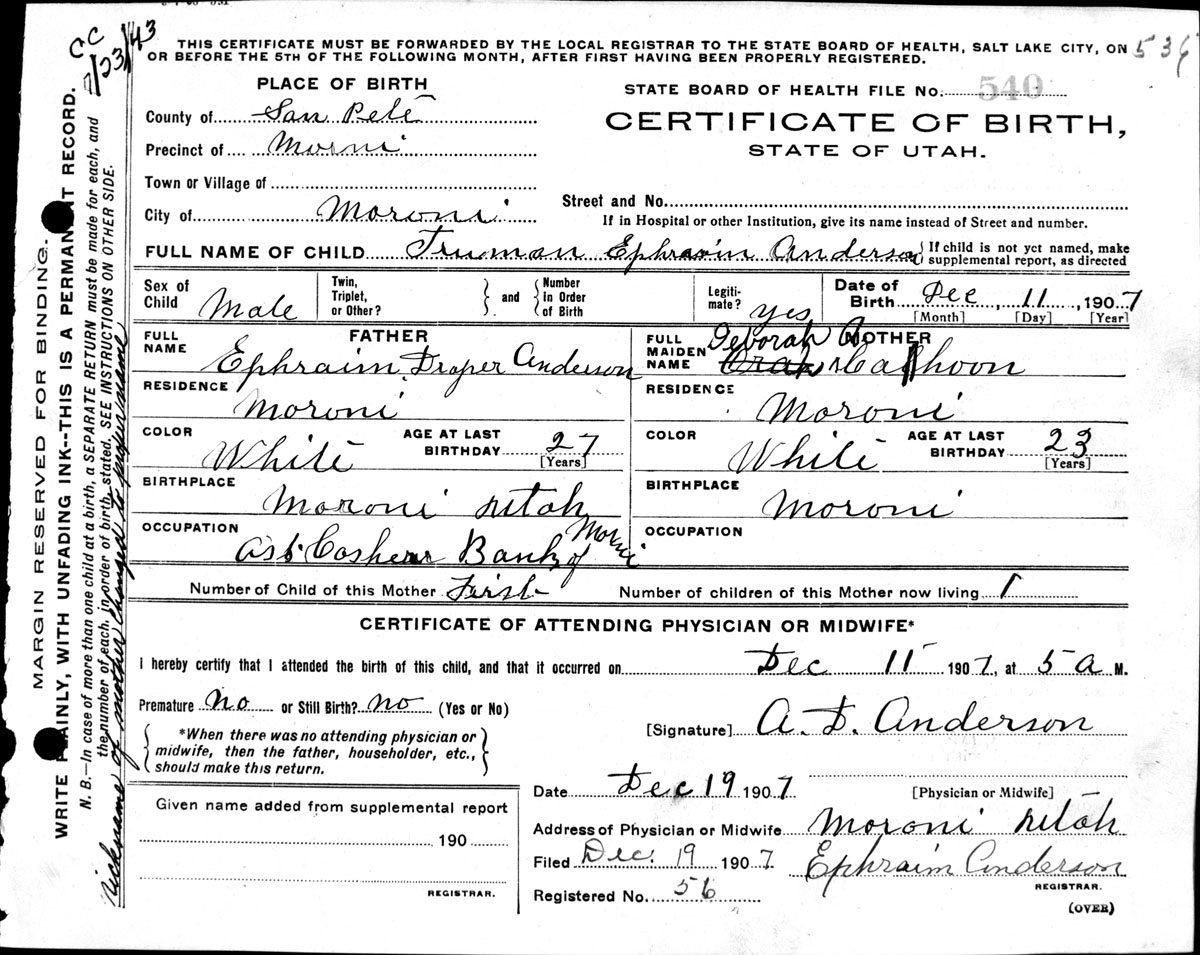 THIS CERTIFICATE MUST BE FORWARDED BY THE LOCAL REGISTRAR TO THE STATE BOARD OF HEALTH, SALT LAKE CITY, ON
OR BEFORE THE 5TH OF THE FOLLOWING MONTH, AFTER FIRST HAVING BEEN PROPERLY REGISTERED.
CC
2/23/43
PLACE OF BIRTH
STATE BOARD OF HEALTH FILE No. 540
County of San Pete
CERTIFICATE OF BIRTH,
STATE OF UTAH.
Precinct of Morni
Town or Village of
Street and No.
City of Moroni
If in Hospital or other Institution, give its name instead of Street and number.
FULL NAME OF CHILD Truman Ephraim Anderson { If child is not yet named, make supplemental report, as directed
Sex of Child Male
Twin, Triplet, or Other? } and { Number in Order of Birth
Legiti-mate? yes
Date of Birth Dec, 11, 1907
[Month] [Day] [Year]
FATHER
FULL NAME Ephraim Draper Anderson
RESIDENCE Moroni
COLOR White AGE AT LAST BIRTHDAY 27 [Years]
BIRTHPLACE Moroni Utah
OCCUPATION Ast Casheer Bank of Morni
MOTHER
FULL MAIDEN NAME Deborah A. Calhoon
RESIDENCE Moroni
COLOR White AGE AT LAST BIRTHDAY 23 [Years]
BIRTHPLACE Moroni
OCCUPATION
Number of Child of this Mother First Number of children of this Mother now living 1
CERTIFICATE OF ATTENDING PHYSICIAN OR MIDWIFE*
I hereby certify that I attended the birth of this child, and that it occurred on Dec 11 1907, at 5 a M.
Premature No or Still Birth? No (Yes or No)
{ *When there was no attending physician or
midwife, then the father, householder, etc.,
should make this return. }
[Signature] A. D. Anderson
Date Dec 19 1907 [Physician or Midwife]
Given name added from supplemental report
190
REGISTRAR.
Address of Physician or Midwife Moroni Utah
Filed Dec. 19 1907 Ephraim Anderson
REGISTRAR.
Registered No. 56
(OVER)
MARGIN RESERVED FOR BINDING.
WRITE PLAINLY, WITH UNFADING INK--THIS IS A PERMANENT RECORD.
N. B.--In case of more than one child at a birth, a SEPARATE RETURN must be made for each, and
the number of each, in order of birth, stated. SEE INSTRUCTIONS ON OTHER SIDE.
Nickname of mother changed to proper name